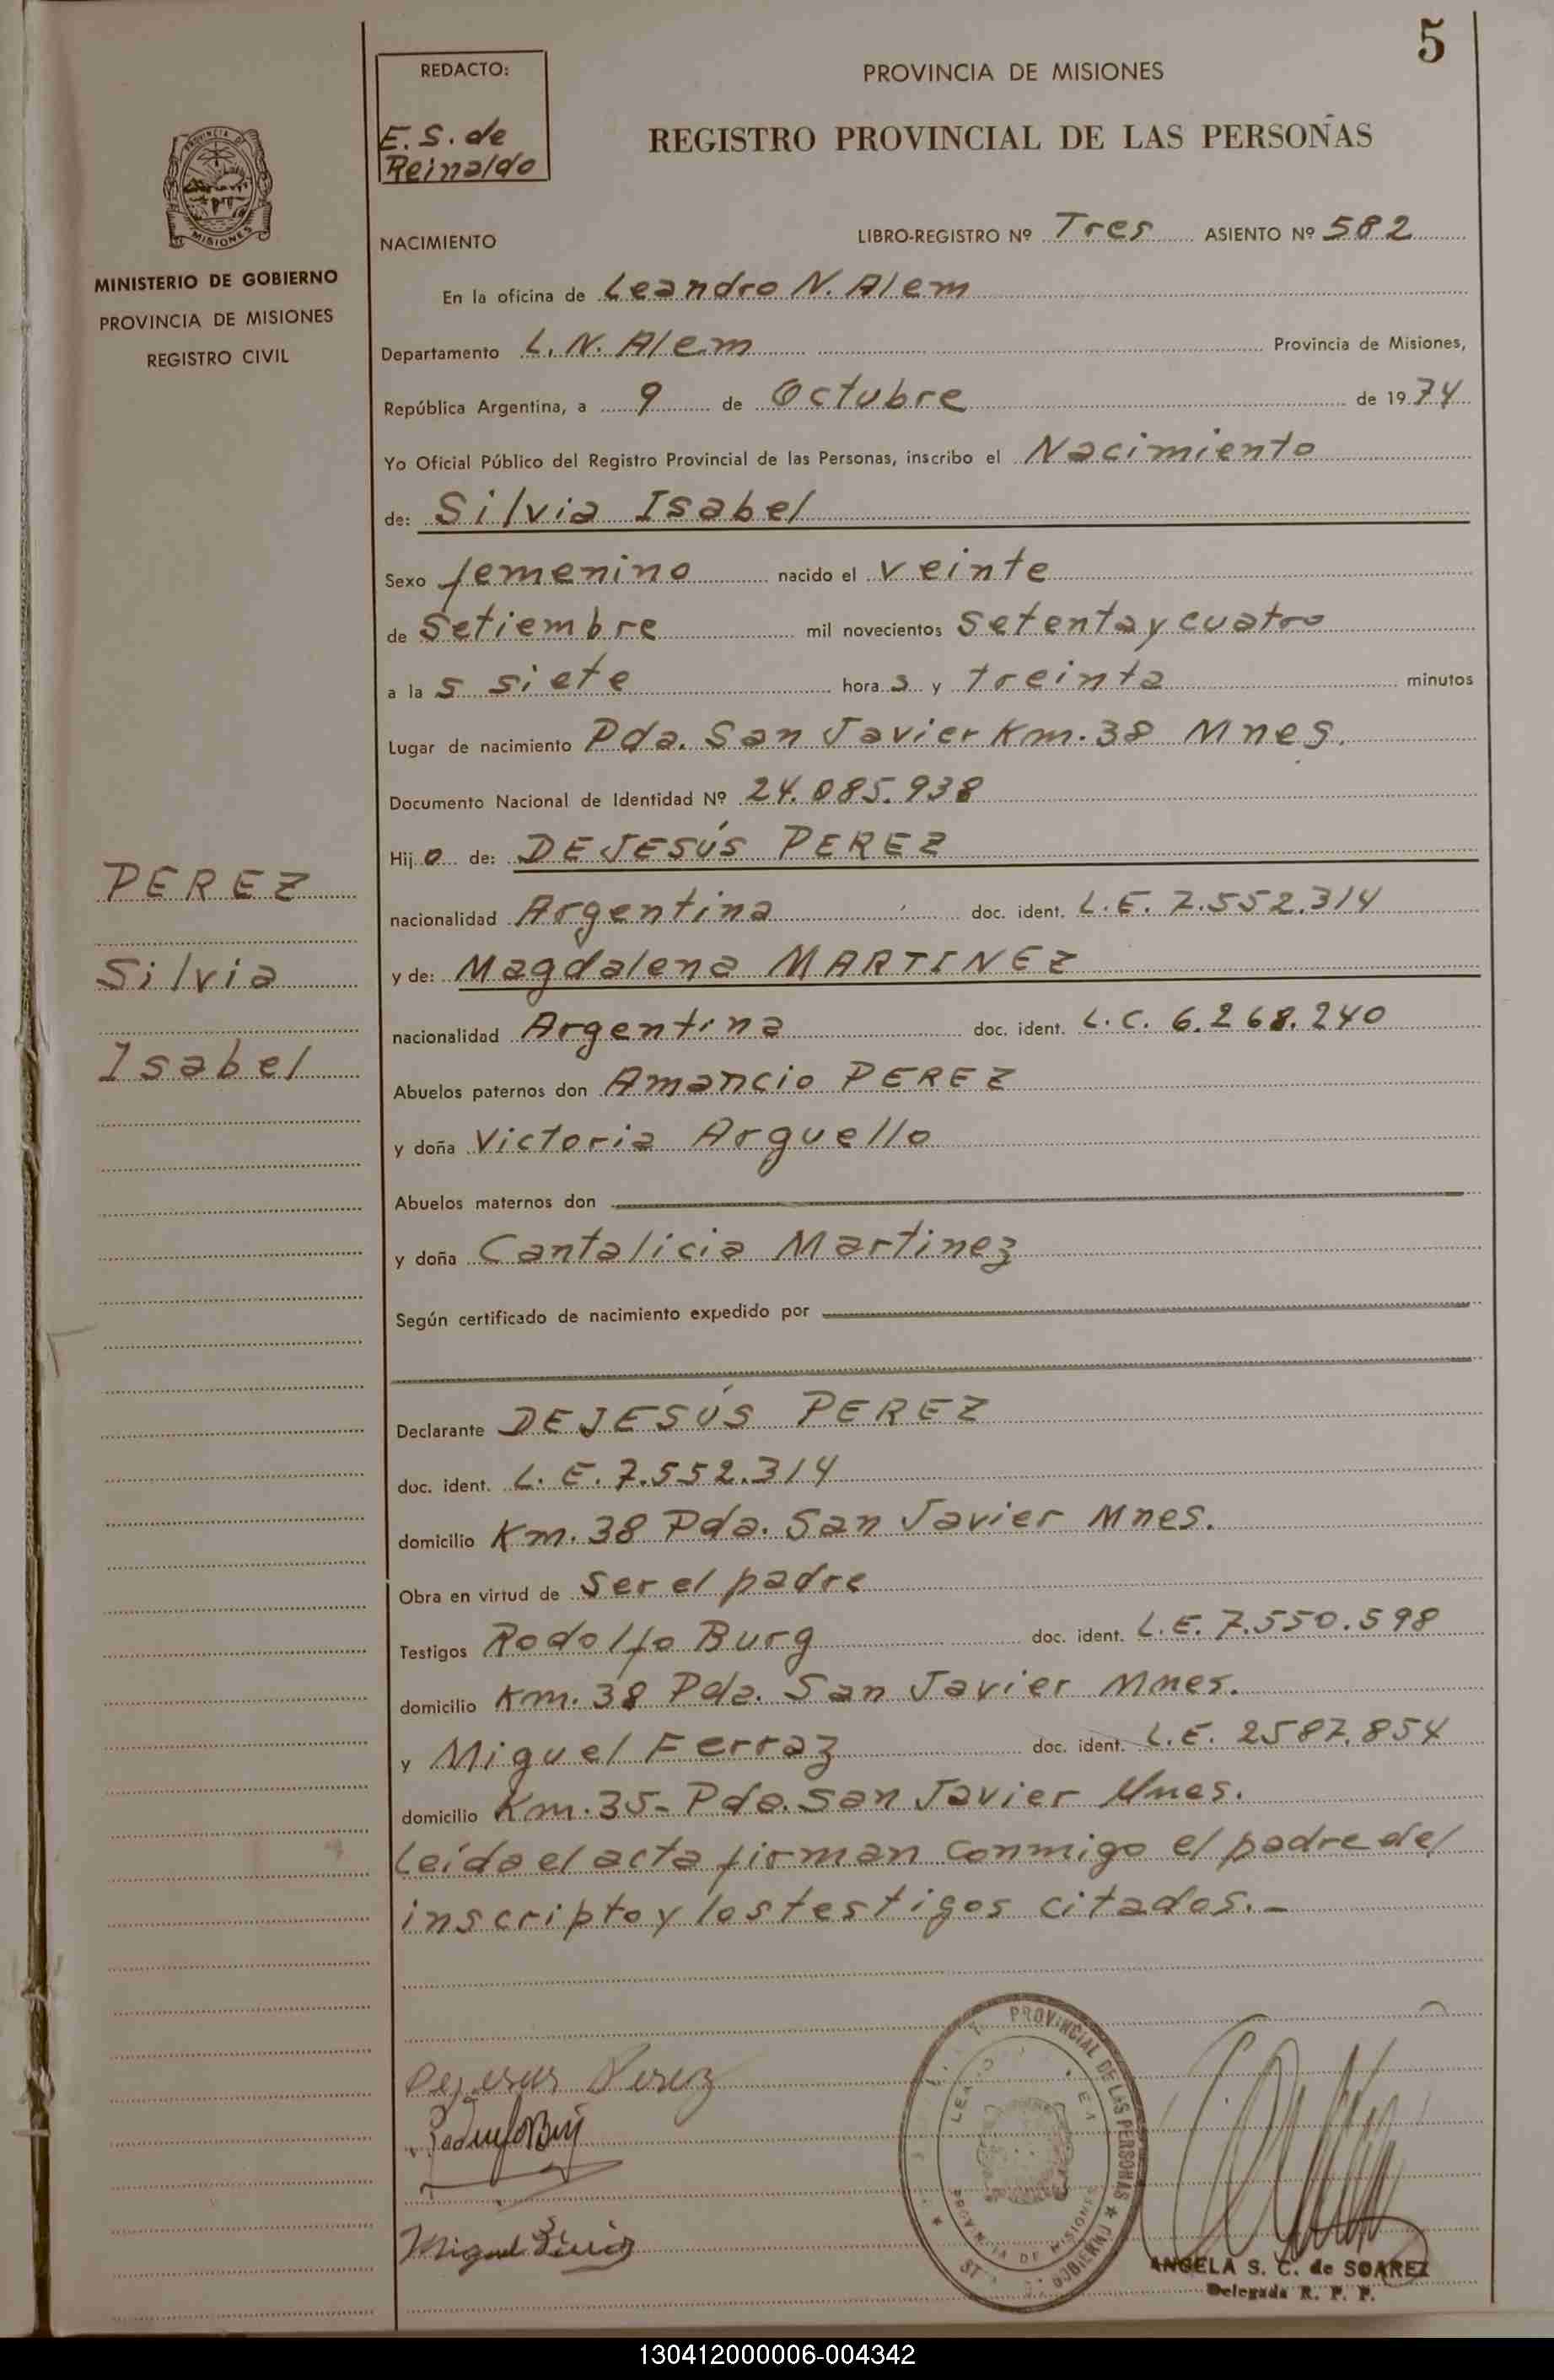 5
REDACTO:
E. S. de
Reinaldo
PROVINCIA DE MISIONES
REGISTRO PROVINCIAL DE LAS PERSONAS
PROVINCIA DE
MISIONES
MINISTERIO DE GOBIERNO
PROVINCIA DE MISIONES
REGISTRO CIVIL
NACIMIENTO LIBRO-REGISTRO Nº Tres ASIENTO Nº 582
En la oficina de Leandro N. Alem
Departamento L. N. Alem Provincia de Misiones,
República Argentina, a 9 de Octubre de 1974
Yo Oficial Público del Registro Provincial de las Personas, inscribo el Nacimiento
de: Silvia Isabel
Sexo femenino nacido el veinte
de Setiembre mil novecientos Setenta y cuatro
a la s siete hora s y treinta minutos
Lugar de nacimiento Pda. San Javier Km. 38 Mnes.
Documento Nacional de Identidad Nº 24.085.938
Hij o de: DEJESÚS PEREZ
PEREZ
Silvia
Isabel
nacionalidad Argentina doc. ident. L.E. 7.552.314
y de: Magdalena MARTINEZ
nacionalidad Argentina doc. ident. L.C. 6.268.240
Abuelos paternos don Amancio PEREZ
y doña Victoria Arguello
Abuelos maternos don
y doña Cantalicia Martinez
Según certificado de nacimiento expedido por
Declarante DEJESÚS PEREZ
doc. ident. L. E. 7.552.314
domicilio Km. 38 Pda. San Javier Mnes.
Obra en virtud de Ser el padre
Testigos Rodolfo Burg doc. ident. L.E. 7.550.598
domicilio Km. 38 Pda. San Javier Mnes.
y Miguel Ferraz doc. ident. L.E. 2587.854
domicilio Km. 35- Pda. San Javier Mnes.
Leída el acta firman conmigo el padre del
inscripto y los testigos citados.-
Dejesus Perez
Miguel
PROVINCIAL DE LAS PERSONAS
GOBIERNO
PROVINCIA DE MISIONES
ANGELA S. C. de SOAREZ
Delegada R. P. P.
130412000006-004342